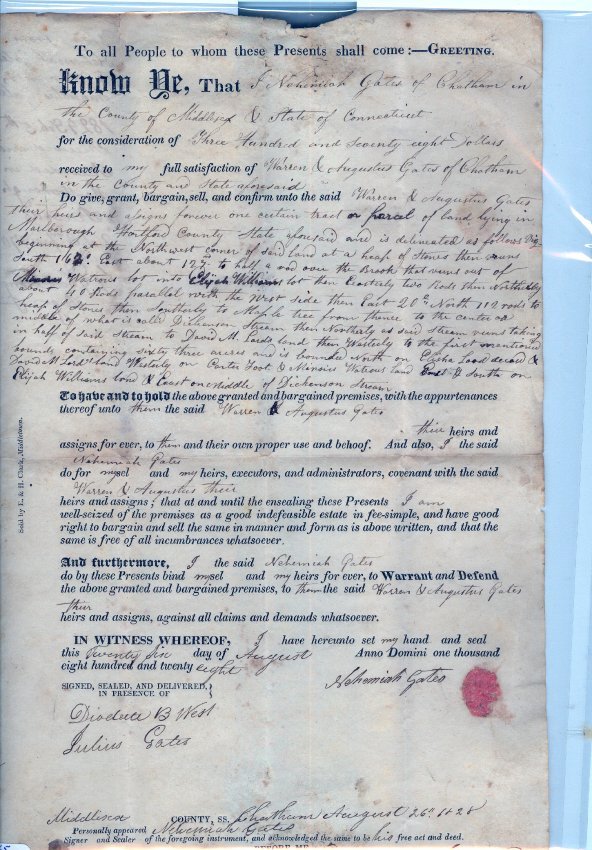 To all People to whom these Presents shall come:—GREETING.
Know Ye, That I Nehemiah Gates of Chatham in
the County of Middlesex & State of Connecticut
for the consideration of Three Hundred and Seventy eight Dollars
received to my full satisfaction of Warren & Augustus Gates of Chatham
in the County and State aforesaid
Do give, grant, bargain, sell, and confirm unto the said Warren & Augustus Gates
their heirs and asigns forever one certain tract or parcel of land lying in
Marlborough Hartford County State aforesaid and is delineated as follows Viz
beginning at the Northwest corner of said land at a heap of Stones then runs
South 16 East about 12 to half a rod over the Brook that runs out of
Watrous lot into Elijah Williams lot then Easterly two Rods then Northerly
about 40 Rods parallel with the West side then East 20 North 112 rods to
heap of Stones then Southerly to Maple tree from thence to the center or
middle of what is calld Dickenson Stream then Northerly as said Stream runs taking
in half of said Stream to David M. Lords land then Westerly to the first mentioned
bounds containing sixty three acres and is bounded North on Elisha Lord deceasd &
David M Lords land Westerly on Carter Foot & Watrous land South on
Elijah Williams land & East on middle of Dickenson Stream
To have and to hold the above granted and bargained premises, with the appurtenances
thereof unto them the said Warren & Augustus Gates
their heirs and
assigns for ever, to them and their own proper use and behoof. And also, I the said
Nehemiah Gates
do for myself and my heirs, executors, and administrators, covenant with the said
Warren & Augustus their
heirs and assigns; that at and until the ensealing these Presents I am
well-seized of the premises as a good indefeasible estate in fee-simple, and have good
right to bargain and sell the same in manner and form as is above written, and that the
same is free of all incumbrances whatsoever.
And furthermore, I the said Nehemiah Gates
do by these Presents bind myself and my heirs for ever, to Warrant and Defend
the above granted and bargained premises, to them the said Warren & Augustus Gates
their
heirs and assigns, against all claims and demands whatsoever.
IN WITNESS WHEREOF, I have hereunto set my hand and seal
this twenty six day of August Anno Domini one thousand
eight hundred and twenty eight
Nehemiah Gates
SIGNED, SEALED, AND DELIVERED,
IN PRESENCE OF
Diodate B West
Julius Gates
Middlesex COUNTY, SS. Chatham August 26th 1828
Personally appeared Nehemiah Gates
Signer and Sealer of the foregoing instrument, and acknowledged the same to be his free act and deed.
BEFORE ME
Sold by E. & H. Clark, Middletown.